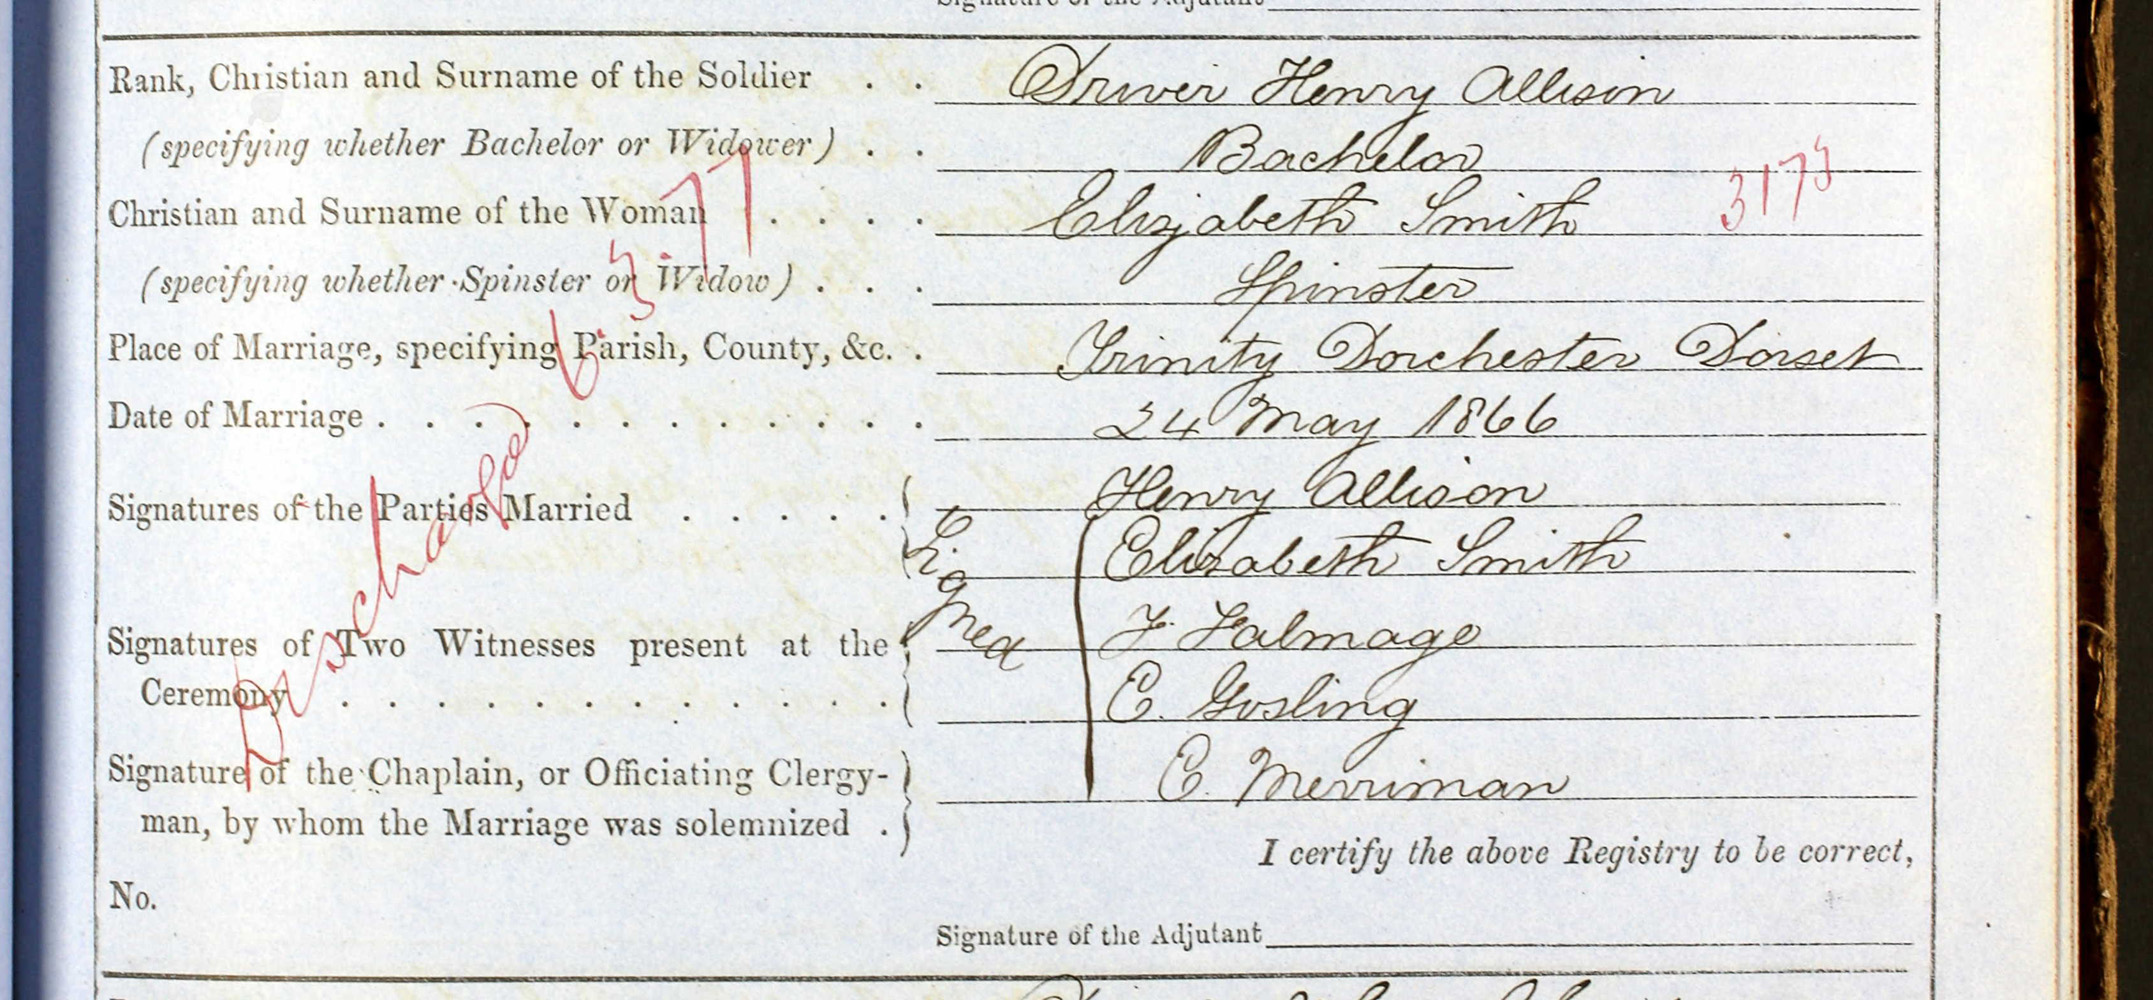 Signature of the Adjutant
Rank, Christian and Surname of the Soldier . . Driver Henry Allison
(specifying whether Bachelor or Widower) . . Bachelor
3173
Christian and Surname of the Woman . . . . Elizabeth Smith
(specifying whether Spinster or Widow) . . . Spinster
Place of Marriage, specifying Parish, County, &c. . Trinity Dorchester Dorset
Date of Marriage . . . . . . . . . . . . 24 May 1866
Signatures of the Parties Married . . . . . Henry Allison
Signed
Elizabeth Smith
Signatures of Two Witnesses present at the
Ceremony . . . . . . . . . . . . E. Gosling
Signature of the Chaplain, or Officiating Clergy- E. Merriman
man, by whom the Marriage was solemnized .
Discharged 6.3.77
I certify the above Registry to be correct,
No.
Signature of the Adjutant